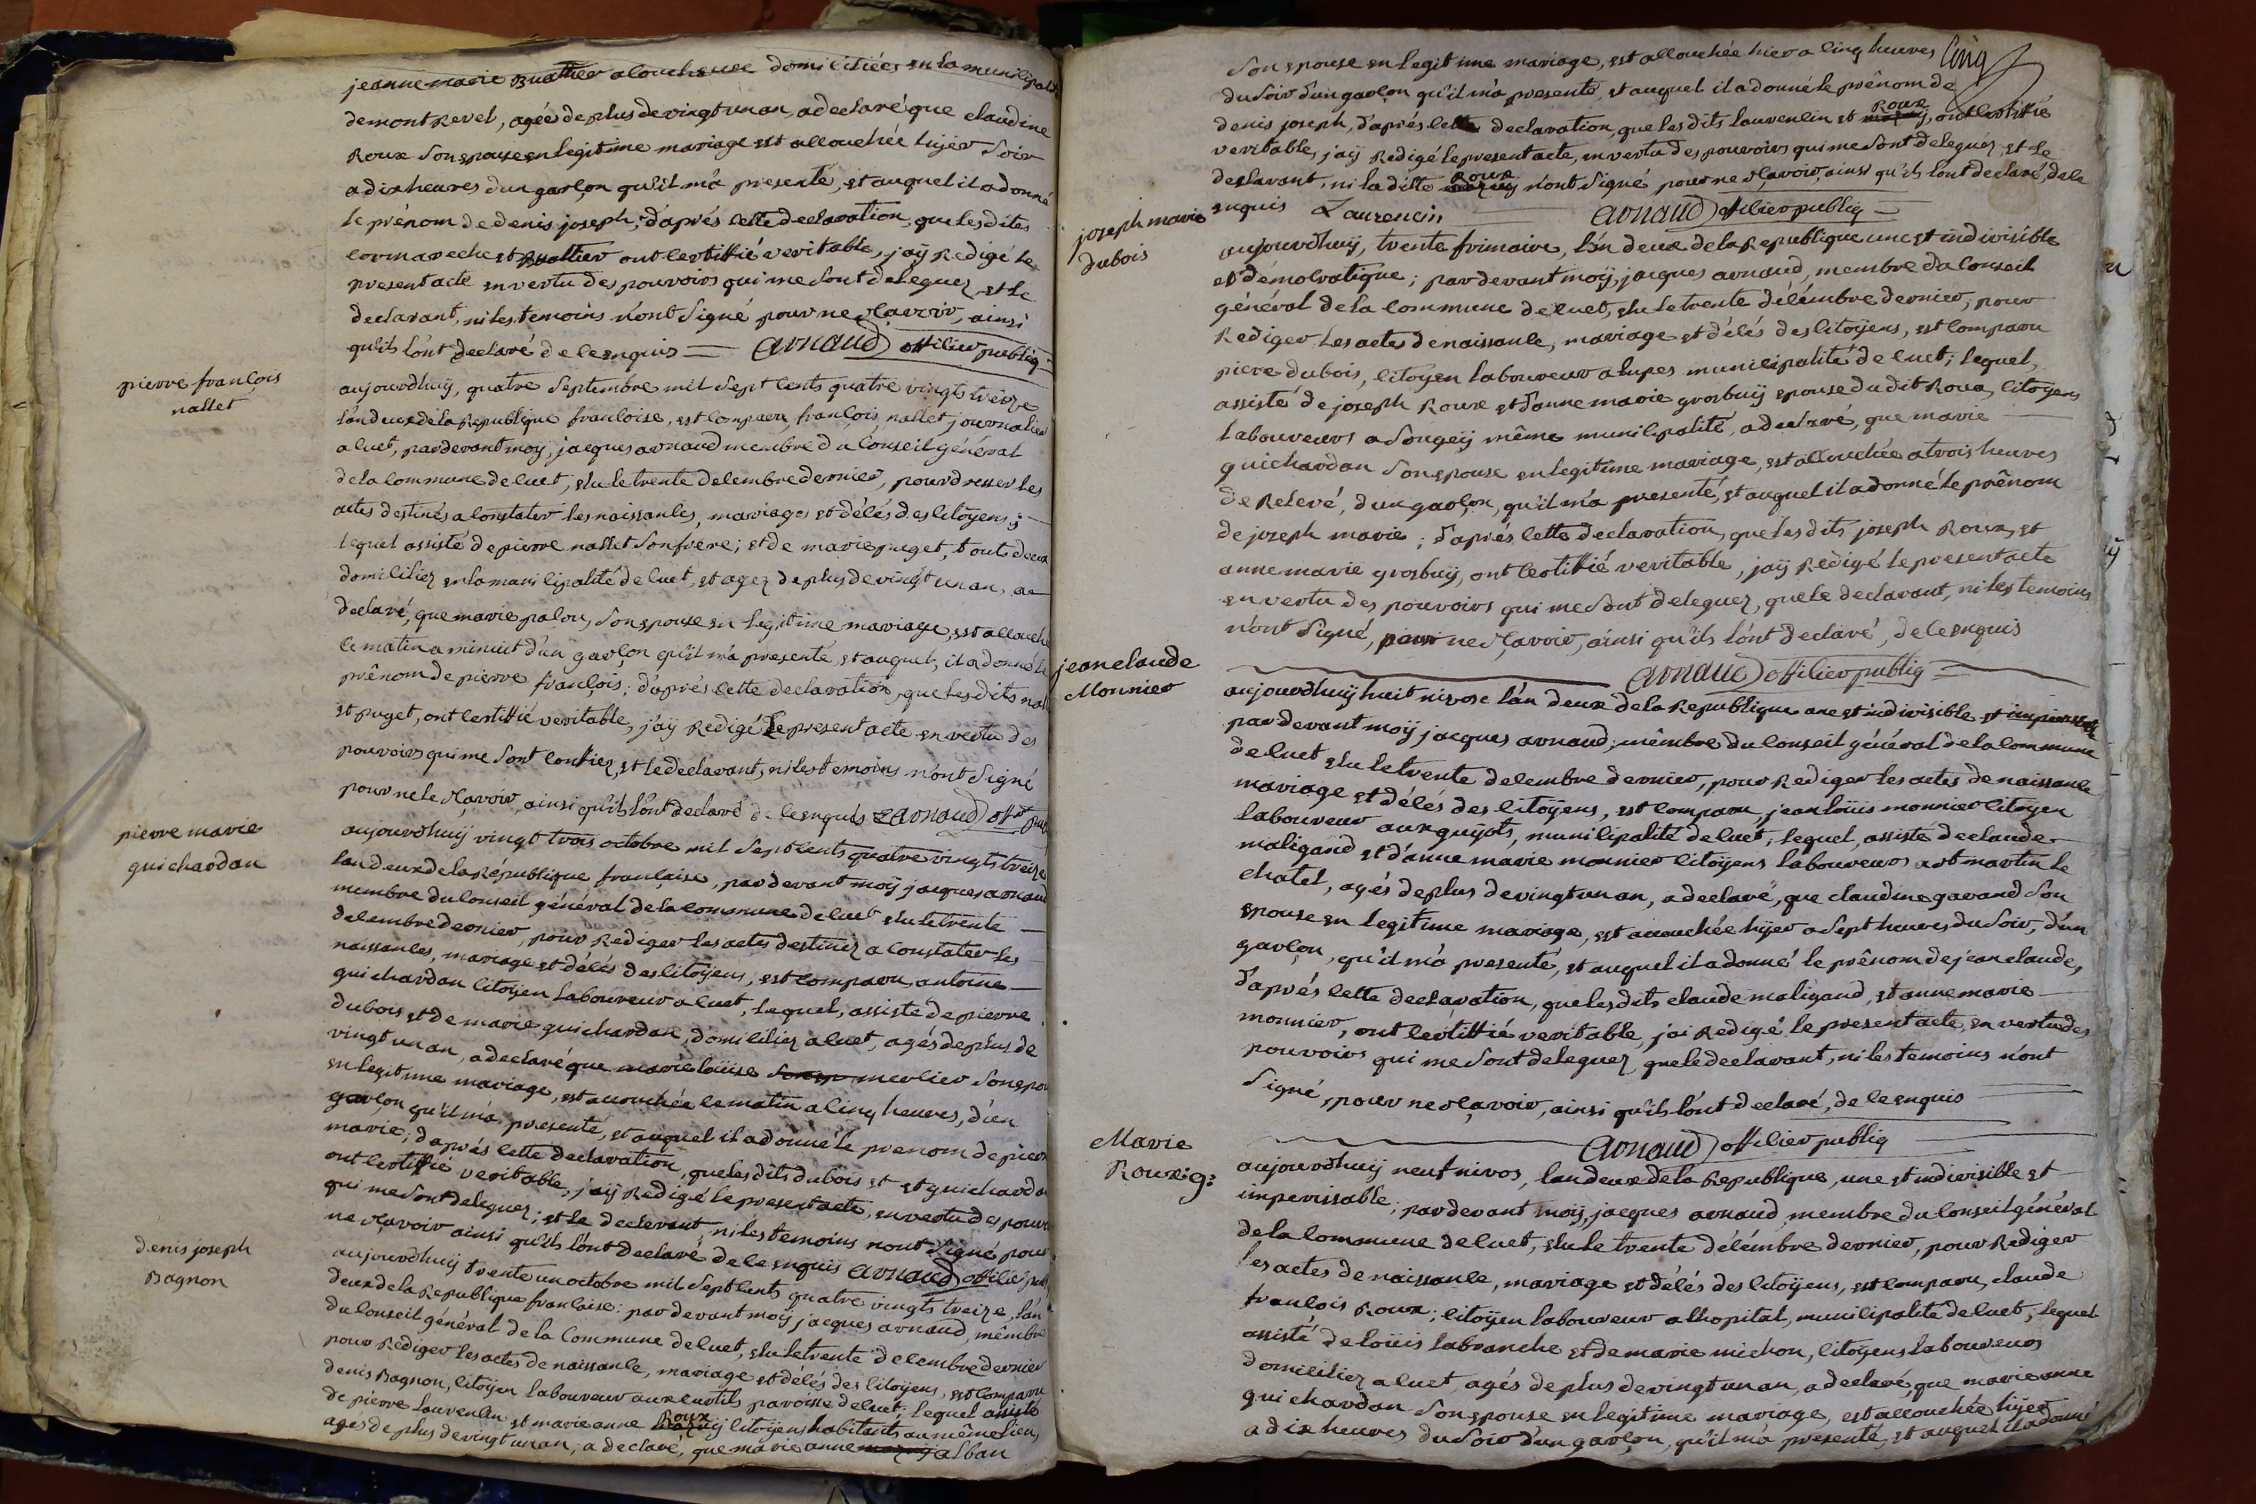 jeanne marie Buathier a louchenee domiciliées en la municipalité
de montrevel, agées de plus de vingt un an, a declaré que claudine
Roux son epouse en legitime mariage est accouchée hyer soir
a dix heures d'un garçon qu'il m'a presenté, et auquel il a donné
le prénom de denis joseph; d'aprés cette declaration, que les dites
cormareche et Buathier ont certiffié veritable, j'aÿ Redigé le
present acte en vertu des pouvoirs qui me sont deleguez, et le
declarant, ni les temoins n'ont signé pour ne sçavoir, ainsi
qu'ils l'ont declaré de ce enquis = arnaud officier publiq =
pierre françois
nallet
aujourdhuÿ, quatre Septembre mil sept cents quatre vingts treize
l'an deux de la Republique françoise, est comparu françois nallet journalier
a cuet, pardevant moÿ, jacques arnaud membre du Conseil général
de la Commune de cuet, elu le trente decembre dernier, pour dresser les
actes destinés a constater les naissances, mariages et décés des citoÿens;
lequel assisté de pierre nallet son frere; et de marie puget, touts deux
domiciliez en la municipalité de cuet, et agez de plus de vingt un an, a
declaré, que marie palou, son epouse en legitime mariage, est accouchée
ce matin a minuit d'un garçon qu'il m'a presenté, et auquel, il a donné le
prênom de pierre françois; d'aprés cette declaration, que les dits nallet
et puget, ont certiffié veritable, j'aÿ Redigé le present acte en vertu des
pouvoirs qui me sont confiez, et le declarant, ni les temoins n'ont signé
pour ne le sçavoir, ainsi qu'ils l'ont declaré de ce enquis = arnaud off. pub.
pierre marie
guichardan
aujourdhuÿ vingt trois octobre mil sept cents quatre vingts treize
l'an deux de la République française, par devant moÿ jacques arnaud
membre du Conseil général de la commune de cuet elu le trente
decembre dernier, pour Rediger les actes destinez a constater les
naissances, mariage et décés des citoÿens, est comparu, antoine
guichardan citoÿen laboureur a cuet, lequel, assisté de pierre
dubois et de marie guichardan, domiciliez a cuet, agés de plus de
vingt un an, a declaré que marie loüise merlier son epouse
en legitime mariage, est accouchée ce matin a cinq heures, d'un
garçon qu'il m'a presenté, et auquel il a donné le prenom de pierre
marie; d'aprés cette declaration, que les dits dubois et et guichardan
ont certiffié veritable, j'aÿ Redigé le present acte, en vertu des pouvoirs
qui me sont deleguez; et le declarant, ni les temoins n'ont signé pour
ne sçavoir ainsi qu'ils l'ont declaré de ce enquis arnaud officier pub
denis joseph
Bagnon
aujourdhuÿ trente un octobre mil sept cents quatre vingts treize, l'an
deux de la Republique française: par devant moÿ jacques arnaud, mêmbre
du Conseil général de la Commune de cuet, elu le trente decembre dernier
pour Rediger les actes de naissance, mariage et décés des citoÿens, est comparu
denis Bagnon, citoÿen laboureur aux curtils paroisse de cuet; lequel assisté
de pierre laurencin et marie anne Roux citoÿens habitants au même lieu,
agés de plus de vingt un an; a declaré, que marie anne alban
Cinq
son epouse en legitime mariage, est accouchée hier a cinq heures
du soir d'un garçon qu'il m'a presenté, et auquel il a donné le prênom de
denis joseph, d'aprés cette declaration, que les dits laurencin et Roux, ont certiffié
veritable, j'aÿ Redigé le present acte, en vertu des pouvoirs qui me sont deleguéz, et le
declarant, ni la ditte Roux n'ont signé pour ne sçavoir, ainsi qu'ils l'ont declaré, de ce
enquis Laurencin arnaud officier publiq =
joseph marie
dubois
aujourdhuÿ, trente frimaire, l'an deux de la Republique une et indivisible
et démocratique; par devant moÿ, jacques arnaud, membre du Conseil
général de la Commune de cuet, elu le trente décémbre dernier, pour
Rediger les actes de naissance, mariage et décés des citoÿens, est comparu
piere dubois, citoÿen laboureur a lupes municipalité de cuet; lequel,
assisté de joseph Roux et d'anne marie grosbuÿ epouse du dit Roux, citoÿens
laboureurs a songeÿ même municipalité, a declaré, que marie
guichardan son epouse en legitime mariage, est accouchée a trois heures
de Relevé, d'un garçon, qu'il m'a presenté, et auquel il a donné le prênom
de jozeph marie; d'aprés cette declaration, que les dits joseph Roux, et
anne marie grosbuÿ, ont certiffié veritable, j'aÿ Redigé le present acte
en vertu des pouvoirs qui me sont deleguez, que le declarant, ni les temoins
n'ont signé, pour ne sçavoir, ainsi qu'ils l'ont declaré, de ce enquis
arnaud officier publiq =
jean claude
Monnier
aujourdhuÿ huit nivose l'an deux de la Republique une et indivisible et imperissable
par devant moÿ jacques arnaud, mêmbre du Conseil général de la commune
de cuet elu le trente decembre dernier, pour Rediger les actes de naissance
mariage et décés des citoÿens, est comparu, jean loüis monnier citoÿen
laboureur aux guÿots, municipalité de cuet, lequel, assisté de claude
maligand et d'anne marie monnier citoÿens laboureurs a st martin le
chatel, agés de plus de vingt un an, a declaré, que claudine gavand son
epouse en legitime mariage, est accouchée hÿer a sept heures du soir, d'un
garçon, qu'il m'a presenté, et auquel il a donné le prênom de jean claude,
d'aprés cette declaration, que les dits claude maligand, et anne marie
monnier, ont certiffié veritable, j'ai Redigé le present acte, en vertu des
pouvoirs qui me sont deleguez, que le declarant, ni les temoins n'ont
signé, pour ne sçavoir, ainsi qu'ils l'ont declaré, de ce enquis
arnaud officier publiq
Marie
Roux:g:
aujourdhuÿ neuf nivos, l'an deux de la Republique, une et indivisible et
imperissable; par devant moÿ, jacques arnaud, membre du Conseil général
de la Commune de cuet, elu le trente décémbre dernier, pour Rediger
les actes de naissance, mariage et décés des citoÿens, est comparu, claude
françois Roux; citoÿen laboureur a lhopital, municipalité de cuet, lequel
assisté de loüis labranche et de marie michon, citoÿens laboureurs
domiciliez a cuet, agés de plus de vingt un an, a declaré, que marie anne
guichardan son epouse en legitime mariage, est accouchée hÿer
a dix heures du soir d'un garçon, qu'il m'a presenté, et auquel il a donné